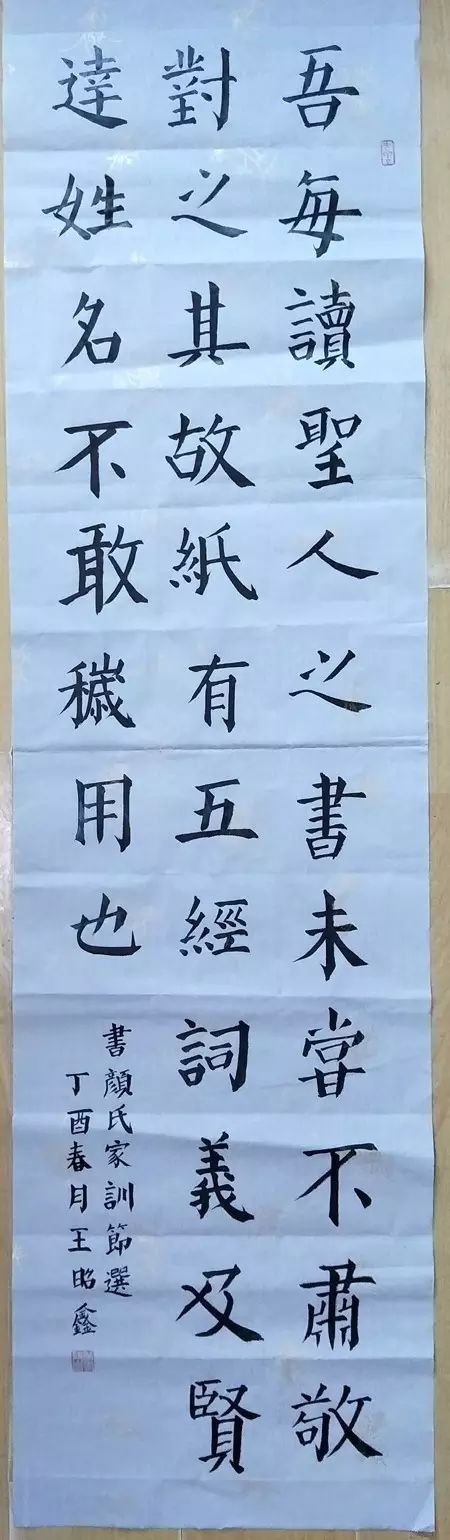 吾每讀聖人之書未嘗不肅敬
對之其故紙有五經詞義及賢
達姓名不敢穢用也
書顏氏家訓節選
丁酉春月王昭鑫